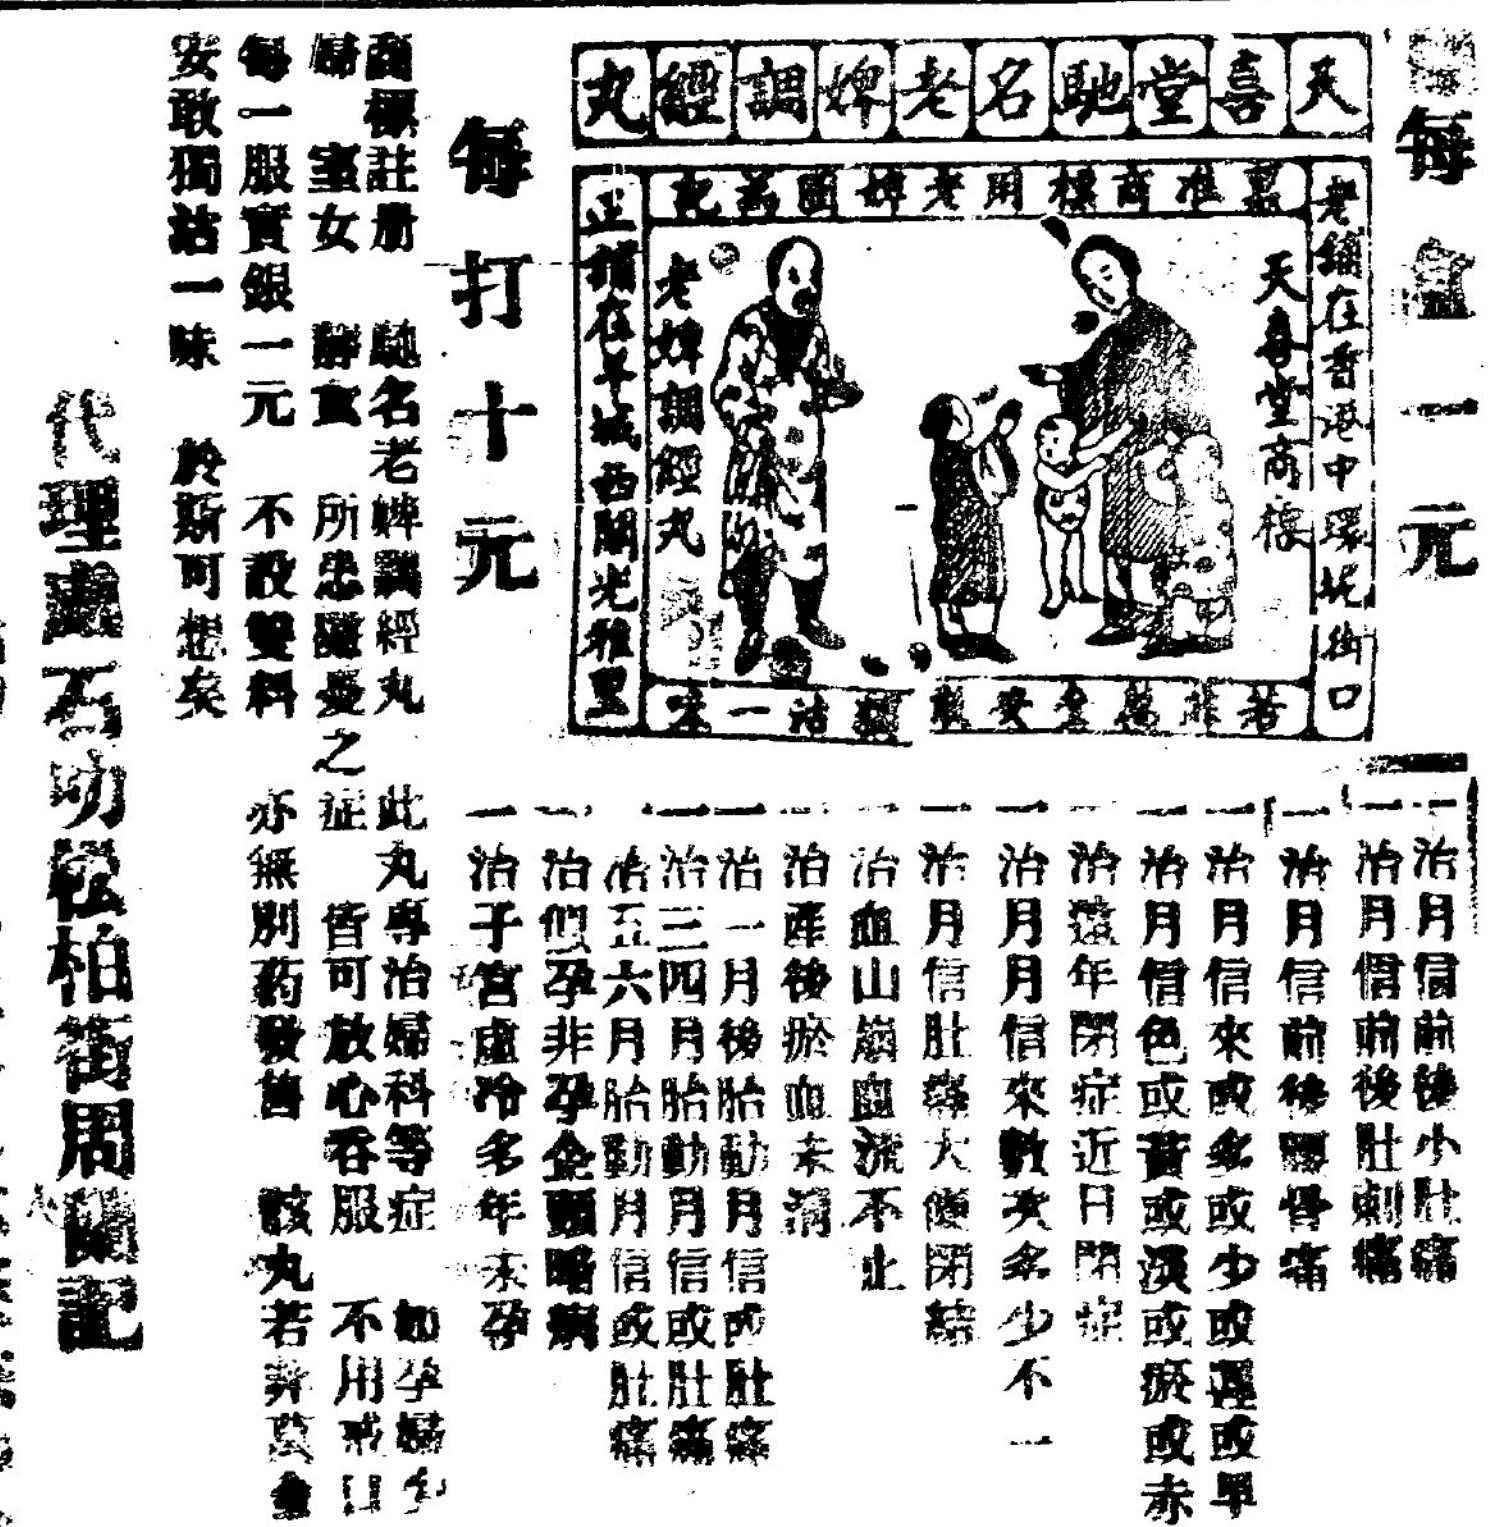 每盒一元
天喜堂馳名老婢調經丸
老鋪在香港中環坑街口
稟准商標用老婢圖為記
正鋪在羊城西關光雅里
若非萬全安敢獨沽一味
天喜堂商標
老婢調經丸
每打十元
一治月信前後小肚痛
一治月信前後肚刺痛
一治月信前後腰骨痛
一治月信來或多或少或遲或早
一治月信色或黃或淡或瘀或赤
一治遠年閉症近日閉症
一治月月信來數次多少不一
一治月信肚痛大便閉結
一治血山崩血流不止
一治產後瘀血未清
一治一月後胎動月信或肚痛
一治三四月胎動月信或肚痛
一治五六月胎動月信或肚痛
一治似孕非孕企頭暗病
一治子宮虛冷多年未孕
商標註册 馳名老婢調經丸 此丸專治婦科等症 如孕婦
婦 室女 所患難憂之症 皆可放心吞服 不用戒口
每一服實銀一元 不設雙料 亦無別药發售 該丸若非萬全
安敢獨沽一味 於斯可想矣
代理處石叻松柏街周蘭記